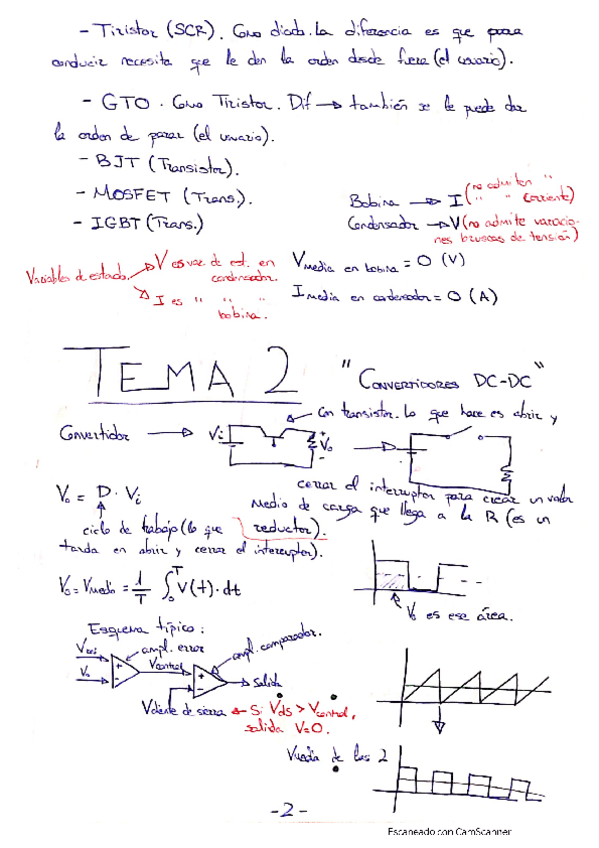 - Tiristor (SCR). Como diodo. La diferencia es que para
conducir necesita que le den la orden desde fuera (el usuario).
- GTO. Como Tiristor. Dif → también se le puede dar
la orden de parar (el usuario).
- BJT (Transistor).
- MOSFET (Trans).
- IGBT (Trans.)
Bobina → I (no admiten " " " corriente)
Condensador → V (no admite variacio-
nes bruscas de tensión)
Variables de estado. → V es var. de est. en
condensador.
→ I es " " "
bobina.
Vmedia en bobina = 0 (V)
Imedia en condensador = 0 (A)
TEMA 2 "CONVERTIDORES DC-DC"
Con transistor. Lo que hace es abrir y
Convertidor → Vi Vo →
cerrar el interruptor para crear un valor
medio de carga que llega a la R (es un
reductor).
Vo = D · Vi
ciclo de trabajo (lo que
tarda en abrir y cerrar el interruptor).
Vo = Vmedio = 1/T ∫₀ᵀ V(t) · dt
Vo es ese área.
Esquema típico:
ampl. error
ampl. comparador.
Vo
Vcontrol
+
-
+
-
→ Salida
Vdiente de sierra ← Si Vds > Vcontrol,
salida V=0.
de las 2
-2-
Escaneado con CamScanner